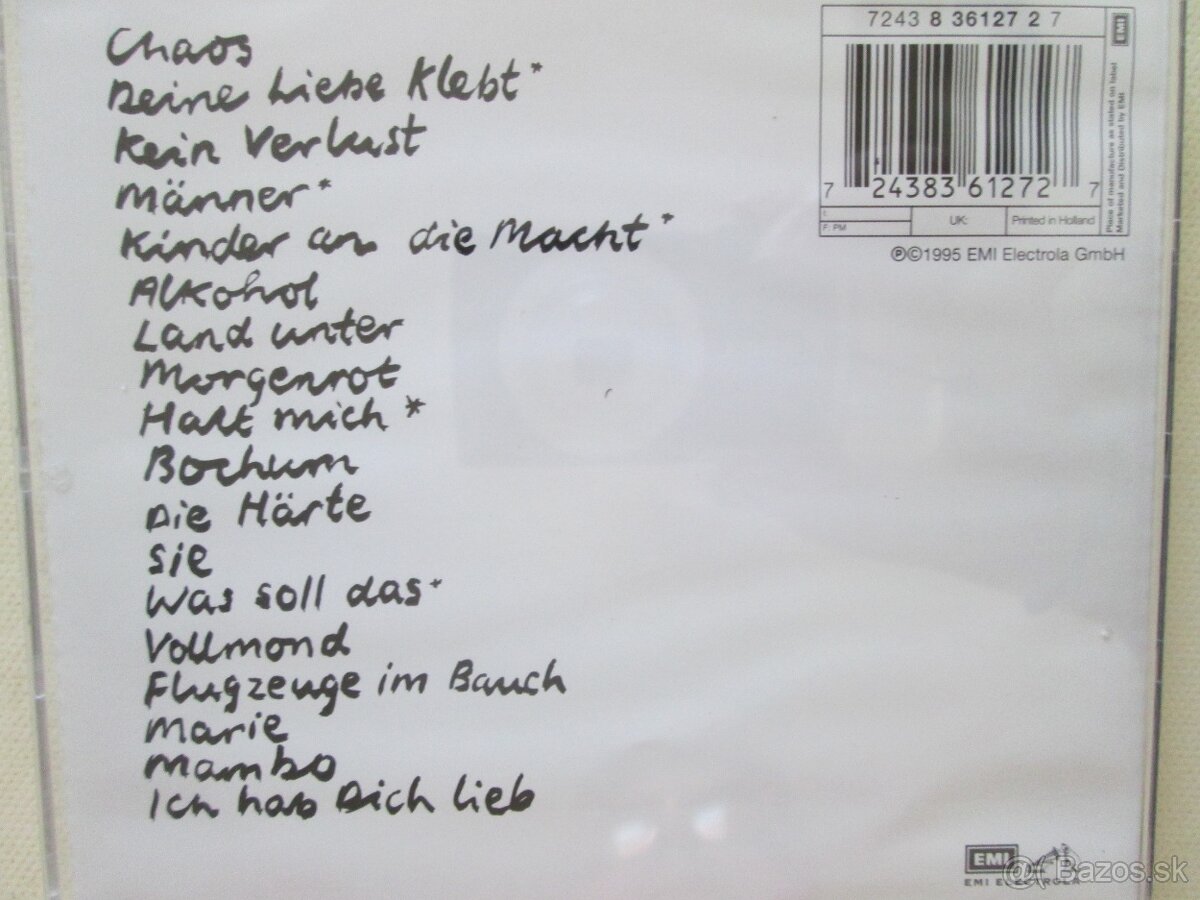 Chaos
Deine Liebe Klebt*
Kein Verlust
Männer*
Kinder an die Macht*
Alkohol
Land unter
Morgenrot
Halt mich*
Bochum
Die Härte
Sie
Was soll das*
Vollmond
Flugzeuge im Bauch
Marie
Mambo
Ich hab Dich lieb
7243 8 36127 2 7
EMI
7 24383 61272 7
UK:
Printed in Holland
F: PM
Place of manufacture as stated on label
Marketed and Distributed by EMI
℗©1995 EMI Electrola GmbH
EMI
EMI ELECTROLA
Bazos.sk